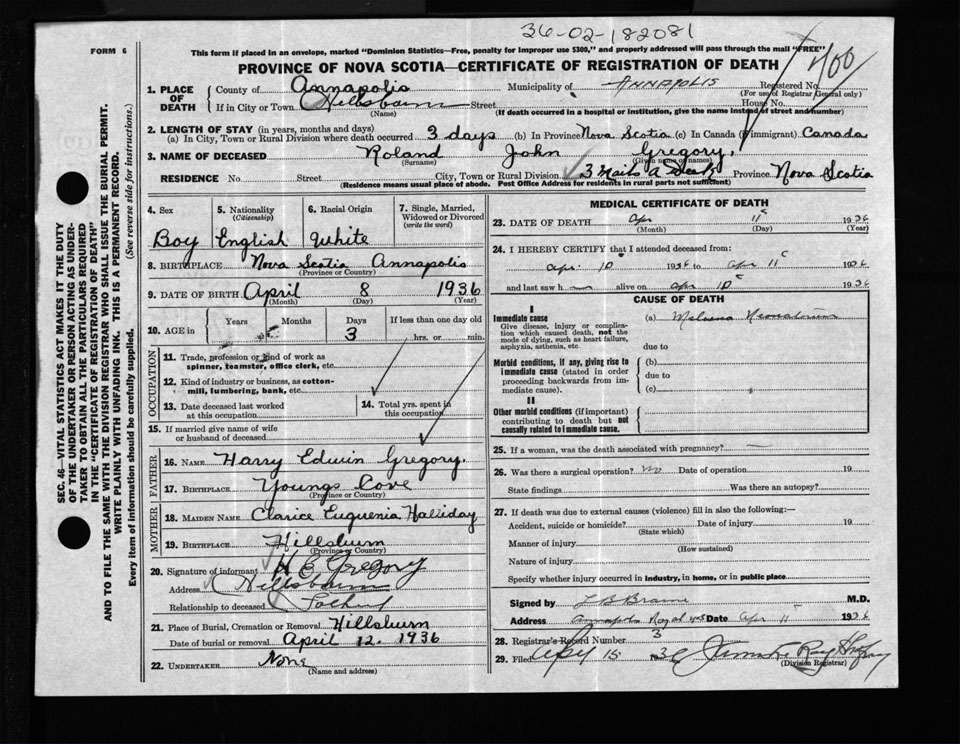 36-02-182081
FORM 6
This form if placed in an envelope, marked "Dominion Statistics—Free, penalty for improper use $300," and properly addressed will pass through the mail "FREE"
PROVINCE OF NOVA SCOTIA—CERTIFICATE OF REGISTRATION OF DEATH
400
1. PLACE OF DEATH
County of Annapolis Municipality of ANNAPOLIS Registered No.
(For use of Registrar General only)
If in City or Town Hillsburn Street House No.
(Name) (If death occurred in a hospital or institution, give the name instead of street and number)
2. LENGTH OF STAY (in years, months and days)
(a) In City, Town or Rural Division where death occurred 3 days (b) In Province Nova Scotia (c) In Canada (if immigrant) Canada
3. NAME OF DECEASED Roland John Gregory,
(Surname) (Given name or names)
RESIDENCE No. Street City, Town or Rural Division 3 Province Nova Scotia
(Residence means usual place of abode. Post Office Address for residents in rural parts not sufficient)
4. Sex 5. Nationality (Citizenship) 6. Racial Origin 7. Single, Married, Widowed or Divorced (write the word)
Boy English White
8. BIRTHPLACE Nova Scotia Annapolis
(Province or Country)
9. DATE OF BIRTH April 8 1936
(Month) (Day) (Year)
10. AGE in Years Months Days If less than one day old
3 hrs. or min.
OCCUPATION
11. Trade, profession or kind of work as spinner, teamster, office clerk, etc.
12. Kind of industry or business, as cotton-mill, lumbering, bank, etc.
13. Date deceased last worked at this occupation
14. Total yrs. spent in this occupation
15. If married give name of wife or husband of deceased
FATHER
16. NAME Harry Edwin Gregory.
17. BIRTHPLACE Youngs Cove
(Province or Country)
MOTHER
18. MAIDEN NAME Clarice Euguenia Halliday
19. BIRTHPLACE Hillsburn
(Province or Country)
20. Signature of informant H E Gregory
Address Hillsburn
Relationship to deceased Father
21. Place of Burial, Cremation or Removal Hillsburn
Date of burial or removal April 12. 1936
22. UNDERTAKER None
(Name and Address)
MEDICAL CERTIFICATE OF DEATH
23. DATE OF DEATH Apr 11 1936
(Month) (Day) (Year)
24. I HEREBY CERTIFY that I attended deceased from:
Apr. 10 1936 to Apr 11 1936
and last saw h alive on Apr 10 1936
CAUSE OF DEATH
I
Immediate cause
Give disease, injury or complication which caused death, not the mode of dying, such as heart failure, asphyxia, asthenia, etc.
(a) Melaena Neonatorum
due to
Morbid conditions, if any, giving rise to immediate cause (stated in order proceeding backwards from immediate cause).
(b)
due to
(c)
II
Other morbid conditions (if important) contributing to death but not causally related to immediate cause.
25. If a woman, was the death associated with pregnancy?
26. Was there a surgical operation? no Date of operation 19
State findings Was there an autopsy?
27. If death was due to external causes (violence) fill in also the following:—
Accident, suicide or homicide? Date of injury 19
(State which)
Manner of injury
(How sustained)
Nature of injury
Specify whether injury occurred in industry, in home, or in public place
Signed by M.D.
Address Annapolis Royal NS Date Apr 11 1936
28. Registrar's Record Number 3
29. Filed Apl 15 36
(Division Registrar)
SEC. 46—VITAL STATISTICS ACT MAKES IT THE DUTY
OF THE UNDERTAKER OR PERSON ACTING AS UNDER-
TAKER TO OBTAIN ALL THE PARTICULARS REQUIRED
IN THE "CERTIFICATE OF REGISTRATION OF DEATH"
AND TO FILE THE SAME WITH THE DIVISION REGISTRAR WHO SHALL ISSUE THE BURIAL PERMIT.
WRITE PLAINLY WITH UNFADING INK. THIS IS A PERMANENT RECORD.
Every item of information should be carefully supplied. (See reverse side for instructions.)